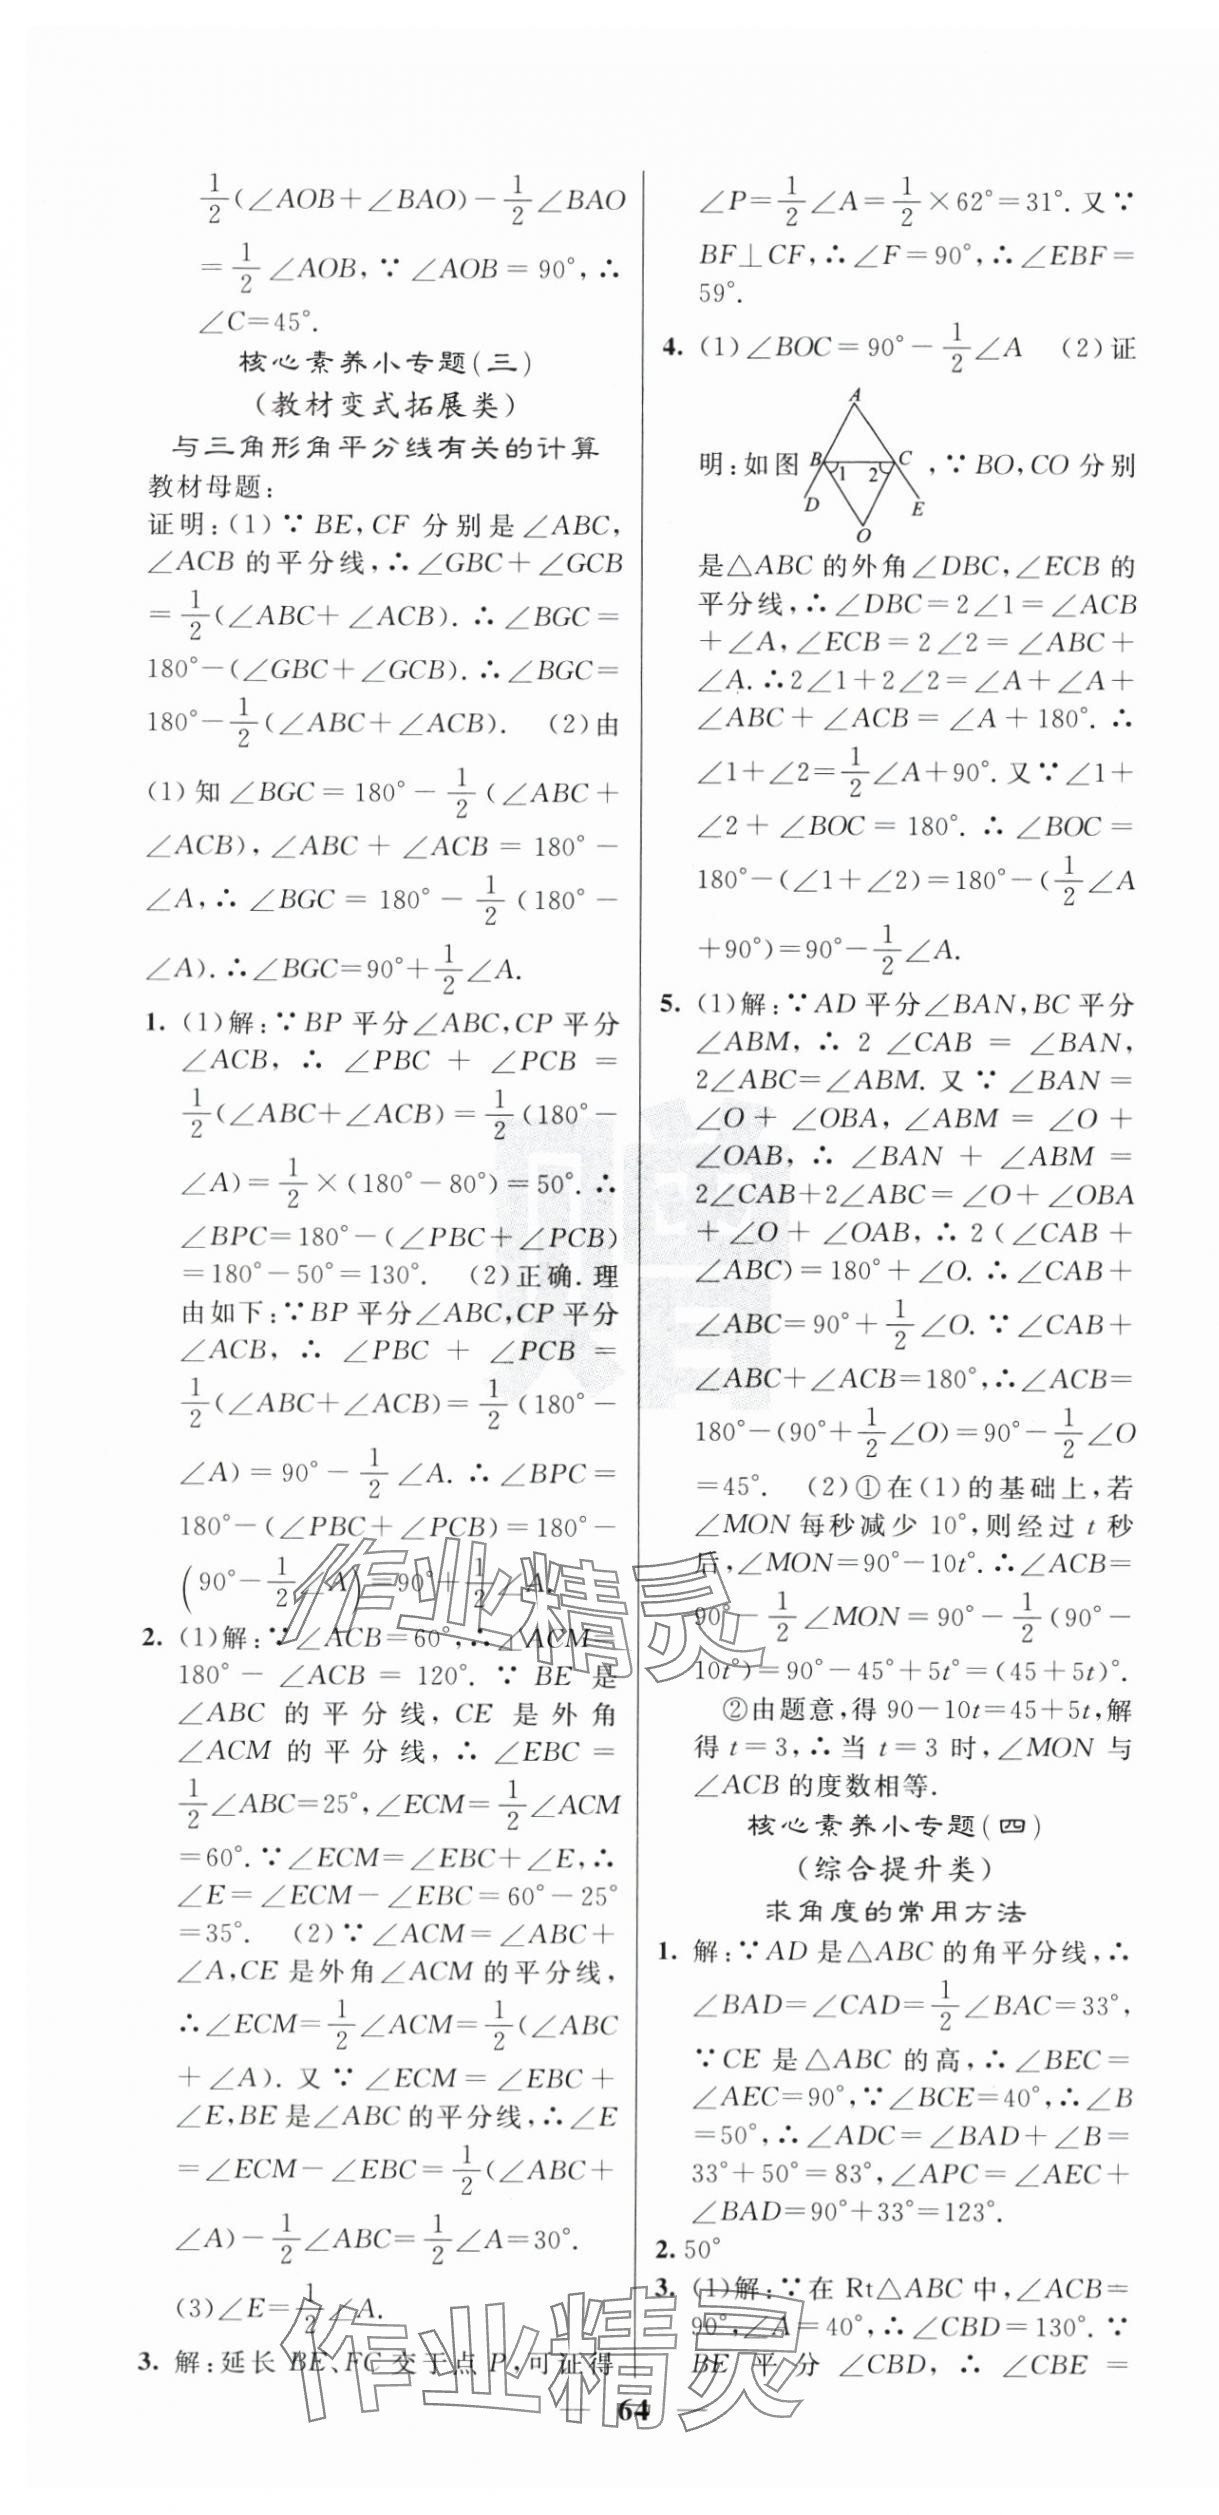 1/2(∠AOB+∠BAO)-1/2∠BAO
=1/2∠AOB,∵∠AOB=90°,∴
∠C=45°.
核心素养小专题(三)
(教材变式拓展类)
与三角形角平分线有关的计算
教材母题:
证明:(1)∵BE,CF 分别是∠ABC,
∠ACB 的平分线,∴∠GBC+∠GCB
=1/2(∠ABC+∠ACB).∴∠BGC=
180°-(∠GBC+∠GCB).∴∠BGC=
180°-1/2(∠ABC+∠ACB). (2)由
(1)知∠BGC=180°-1/2(∠ABC+
∠ACB),∠ABC+∠ACB=180°-
∠A,∴∠BGC=180°-1/2(180°-
∠A).∴∠BGC=90°+1/2∠A.
1. (1)解:∵BP 平分∠ABC,CP 平分
∠ACB,∴∠PBC+∠PCB=
1/2(∠ABC+∠ACB)=1/2(180°-
∠A)=1/2×(180°-80°)=50°.∴
∠BPC=180°-(∠PBC+∠PCB)
=180°-50°=130°. (2)正确.理
由如下:∵BP 平分∠ABC,CP 平分
∠ACB,∴∠PBC+∠PCB=
1/2(∠ABC+∠ACB)=1/2(180°-
∠A)=90°-1/2∠A.∴∠BPC=
180°-(∠PBC+∠PCB)=180°-
(90°-1/2∠A)=90°+1/2∠A.
2. (1)解:∵∠ACB=60°,∴∠ACM=
180°-∠ACB=120°.∵BE 是
∠ABC 的平分线,CE 是外角
∠ACM 的平分线,∴∠EBC=
1/2∠ABC=25°,∠ECM=1/2∠ACM
=60°.∵∠ECM=∠EBC+∠E,∴
∠E=∠ECM-∠EBC=60°-25°
=35°. (2)∵∠ACM=∠ABC+
∠A,CE 是外角∠ACM 的平分线,
∴∠ECM=1/2∠ACM=1/2(∠ABC
+∠A).又∵∠ECM=∠EBC+
∠E,BE 是∠ABC 的平分线,∴∠E
=∠ECM-∠EBC=1/2(∠ABC+
∠A)-1/2∠ABC=1/2∠A=30°.
(3)∠E=1/2∠A.
3. 解:延长 BE、FC 交于点 P,可证得
∠P=1/2∠A=1/2×62°=31°.又∵
BF⊥CF,∴∠F=90°,∴∠EBF=
59°.
4. (1)∠BOC=90°-1/2∠A (2)证
明:如图 A B C 1 2 D E O ,∵BO,CO 分别
是△ABC 的外角∠DBC,∠ECB 的
平分线,∴∠DBC=2∠1=∠ACB
+∠A,∠ECB=2∠2=∠ABC+
∠A.∴2∠1+2∠2=∠A+∠A+
∠ABC+∠ACB=∠A+180°.∴
∠1+∠2=1/2∠A+90°.又∵∠1+
∠2+∠BOC=180°.∴∠BOC=
180°-(∠1+∠2)=180°-(1/2∠A
+90°)=90°-1/2∠A.
5. (1)解:∵AD 平分∠BAN,BC 平分
∠ABM,∴2∠CAB=∠BAN,
2∠ABC=∠ABM.又∵∠BAN=
∠O+∠OBA,∠ABM=∠O+
∠OAB,∴∠BAN+∠ABM=
2∠CAB+2∠ABC=∠O+∠OBA
+∠O+∠OAB,∴2(∠CAB+
∠ABC)=180°+∠O.∴∠CAB+
∠ABC=90°+1/2∠O.∵∠CAB+
∠ABC+∠ACB=180°,∴∠ACB=
180°-(90°+1/2∠O)=90°-1/2∠O
=45°. (2)①在(1)的基础上,若
∠MON 每秒减少 10°,则经过 t 秒
后,∠MON=90°-10t°.∴∠ACB=
90°-1/2∠MON=90°-1/2(90°-
10t°)=90°-45°+5t°=(45+5t)°.
②由题意,得 90-10t=45+5t,解
得 t=3,∴当 t=3 时,∠MON 与
∠ACB 的度数相等.
核心素养小专题(四)
(综合提升类)
求角度的常用方法
1. 解:∵AD 是△ABC 的角平分线,∴
∠BAD=∠CAD=1/2∠BAC=33°,
∵CE 是△ABC 的高,∴∠BEC=
∠AEC=90°,∵∠BCE=40°,∴∠B
=50°,∴∠ADC=∠BAD+∠B=
33°+50°=83°,∠APC=∠AEC+
∠BAD=90°+33°=123°.
2. 50°
3. (1)解:∵在 Rt△ABC 中,∠ACB=
90°,∠A=40°,∴∠CBD=130°.∵
BE 平分∠CBD,∴∠CBE=
— 64 —
作业精灵
作业精灵